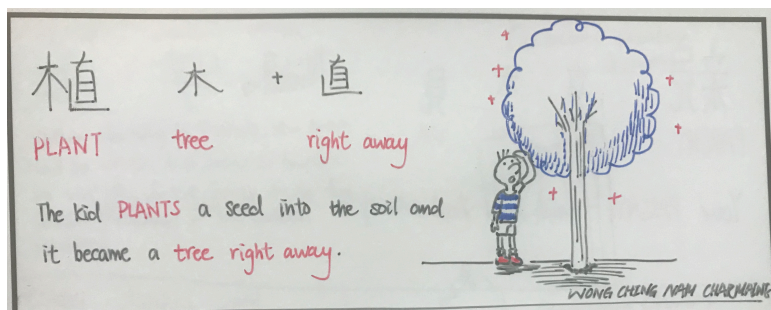 植 木 + 直
PLANT tree right away
The kid PLANTS a seed into the soil and
it became a tree right away.
WONG CHING NAM CHARMAINE